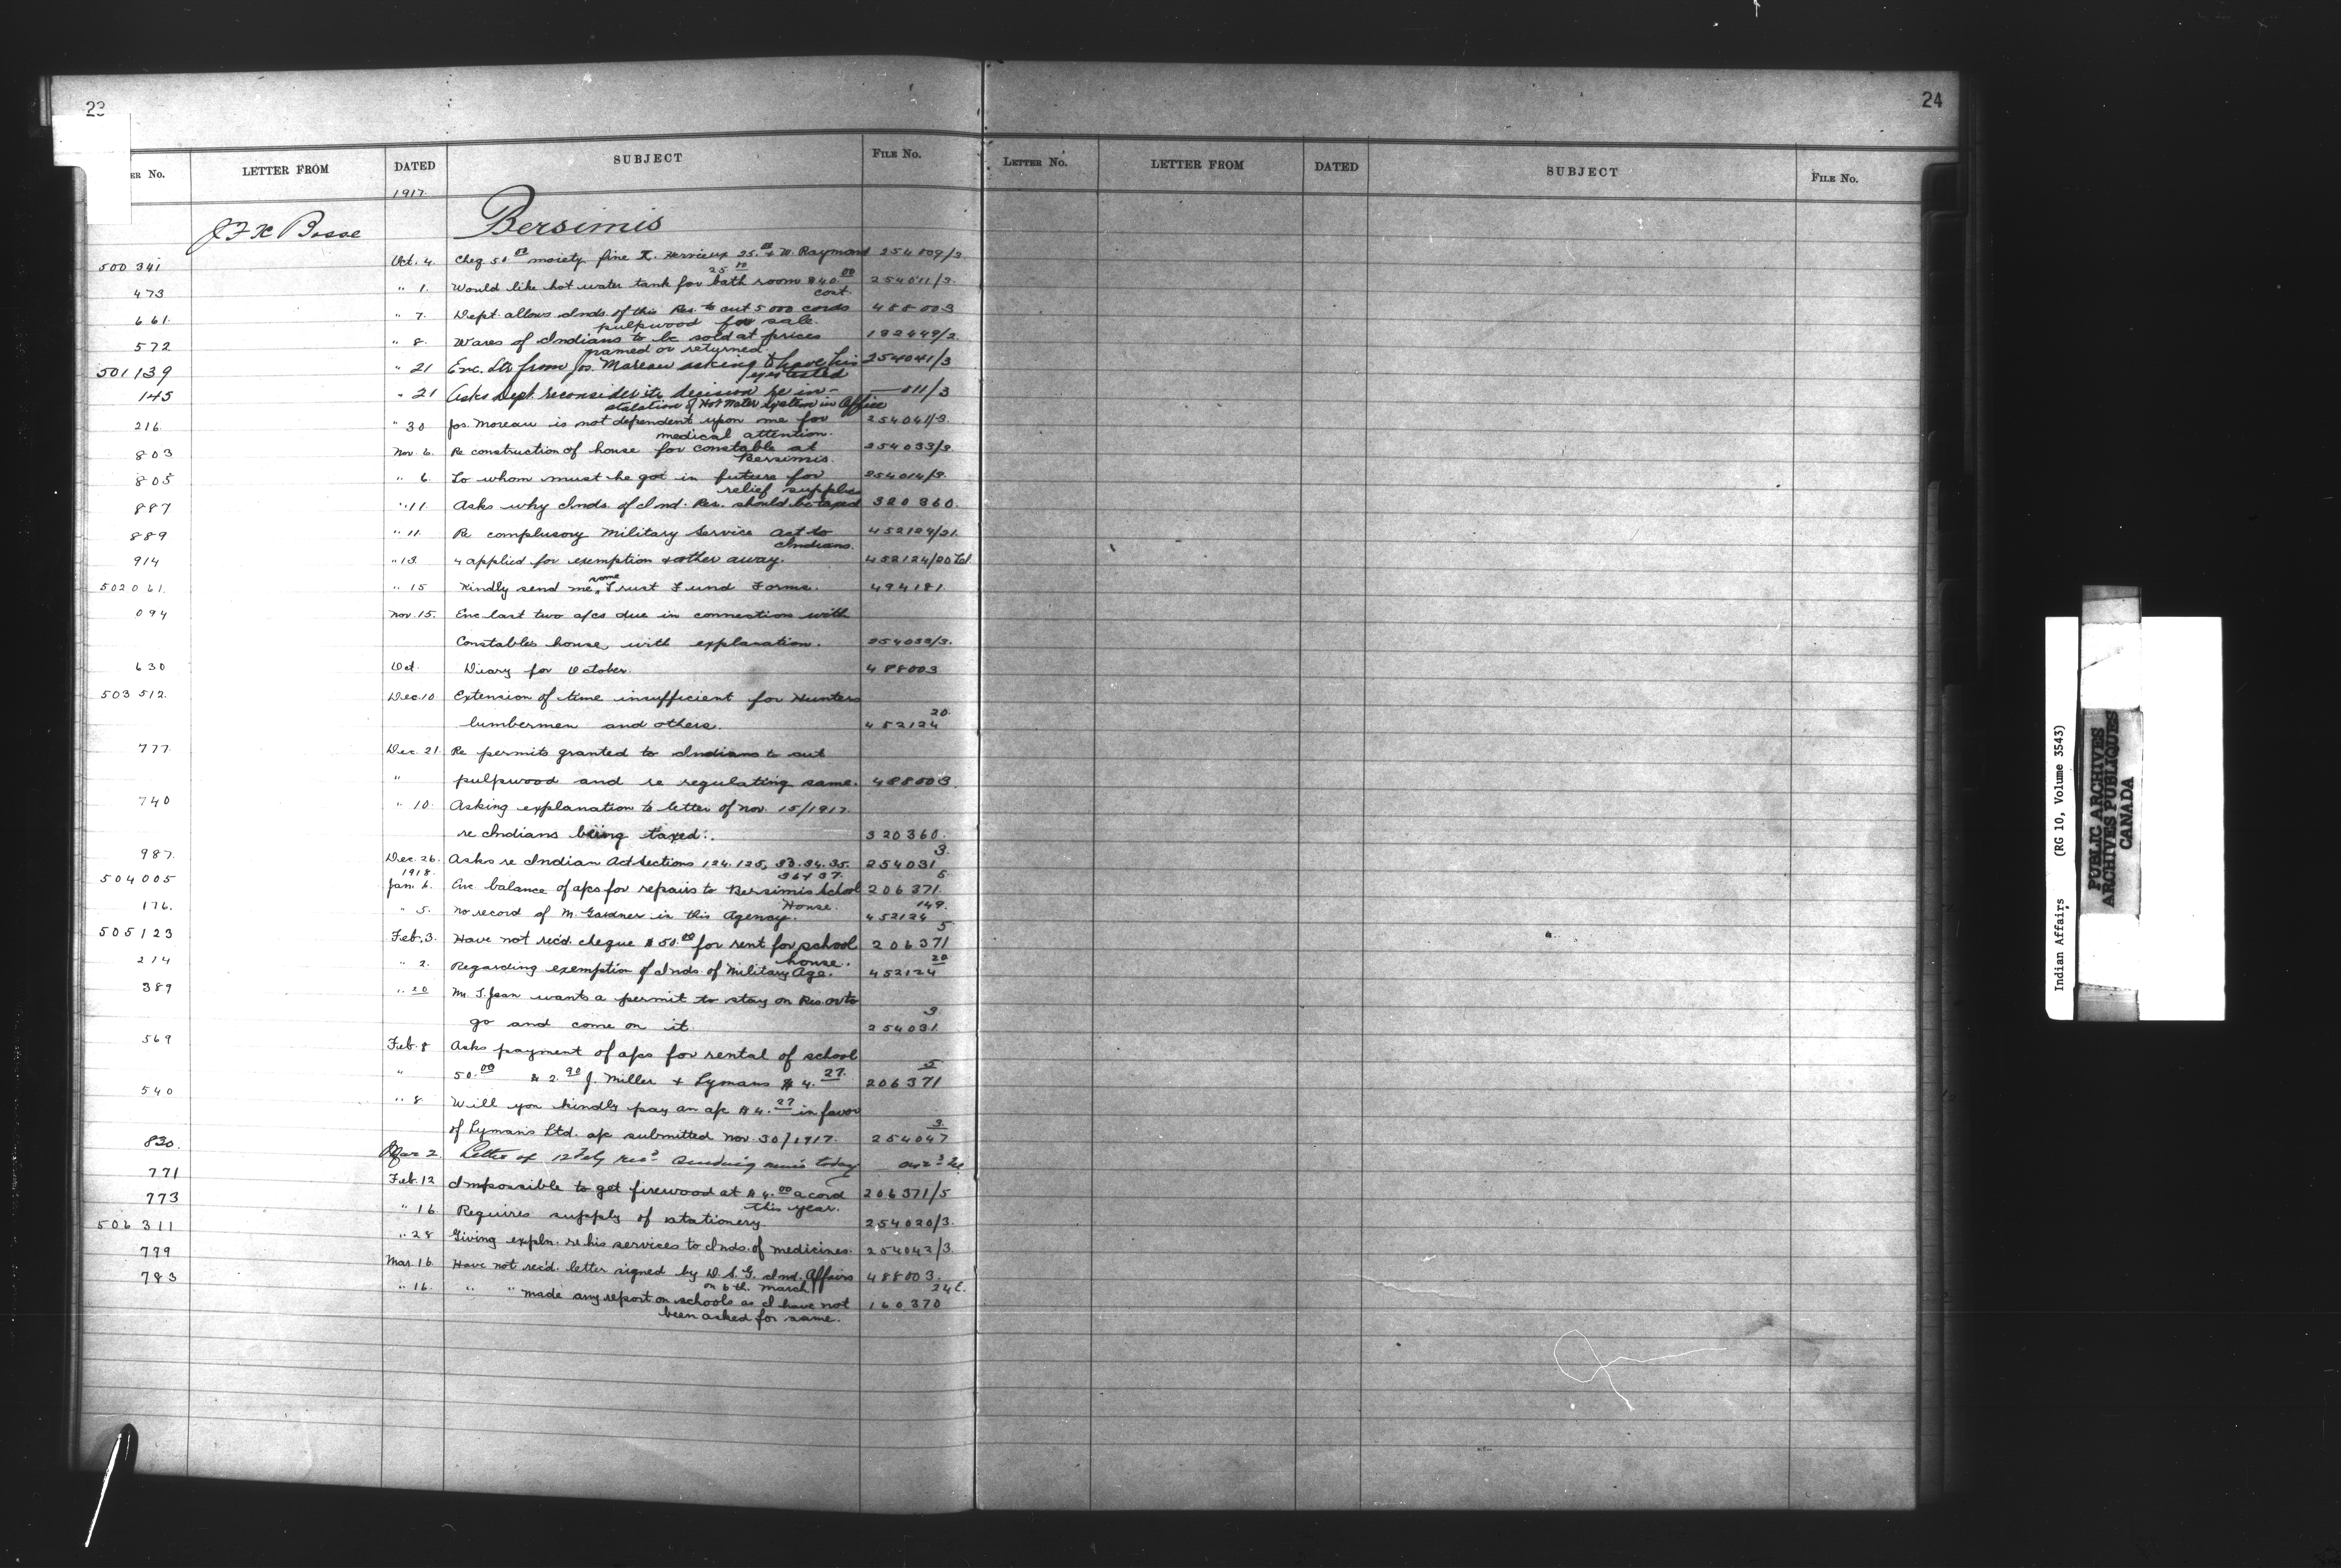 23
24
ER No. LETTER FROM DATED SUBJECT FILE No.
LETTER No. LETTER FROM DATED SUBJECT FILE No.
1917.
J F X Bosse Bersimis
500 341 Oct. 4. Cheq 50.00 moiety fine X. Hervieux 25.00 & W. Raymond 254009/3
25.00
473 " 1. Would like hot water tank for bath room $40.00 254011/3.
cost.
661. " 7. Dept. allows Inds. of this Res. to cut 5000 cords 488003
pulpwood for sale.
572 " 8. Wares of Indians to be sold at prices 182449/2.
named or returned.
501,139 " 21 Enc. Ltr from Jos. Moreau asking to have his 254041/3
eyes tested
145 " 21 Asks Dept. reconsider its decision re in- — 011/3
stalation of Hot Water System in Office
216 " 30 Jos. Moreau is not dependent upon me for 254041/3
medical attention.
803 Nov. 6. Re construction of house for constable at 254033/3.
Bersimis.
805 " 6. To whom must he go in future for 254014/3.
relief supplies
887 " 11. Asks why Inds. of Ind. Res. should be taxed 320360.
889 " 11. Re complusory Military Service Act to 452124/21.
Indians.
914 " 13 4 applied for exemption & other away. 452124/20
502061. " 15 Kindly send me some Trust Fund Forms. 494181
094 Nov. 15. Enc last two a/cs due in connection with
Constables house, with explanation. 254033/3.
630 Oct. Diary for October. 488003
503 512. Dec. 10 Extension of time insufficient for Hunters 20.
lumbermen and others. 452124
777. Dec. 21. Re permits granted to Indians to cut
" pulpwood and re regulating same. 488003.
740 " 10. Asking explanation to letter of Nov. 15/1917.
re Indians being taxed. 320360.
987. Dec. 26. Asks re Indian Act Sections 124. 125, 33. 34. 35. 254031 3.
1918. 36 & 37.
504005 Jan. 6. Enc. balance of a/cs for repairs to Bersimis School 206371. 5
House.
176. " 5. No record of M. Gardner in this Agency. 452124 149.
505123 Feb. 3. Have not rec'd. cheque $50.00 for rent for school 206371 5
house.
214 " 2. Regarding exemption of Inds. of Military Age. 452124 20
389 " 20 Mr. T. Jean wants a permit to stay on Res. or to
go and come on it. 254031. 3
569 Feb. 8 Asks payment of a/cs for rental of school
" 50.00 & 2.90 J. Miller & Lymans $4.27. 206371 5
540 " 8 Will you kindly pay an a/c $4.27 in favor
of Lyman's Ltd. a/c submitted Nov. 30/1917. 254047 3.
830. Mar 2 Letter of 12 Feby rec'd today
771 Feb. 12 Impossible to get firewood at $4.00 a cord 206371/5
this year.
773 " 16 Requires supply of stationery 254020/3.
506311 " 28 Giving expln. re his services to Inds. of medicines. 254042/3
799 Mar. 16 Have not rec'd. letter signed by D. S. G. Ind. Affairs 488003.
on 6th. March
783 " 16. " " made any report on schools as I have not 160370
been asked for same.
Indian Affairs (RG 10, Volume 3543)
PUBLIC ARCHIVES
ARCHIVES PUBLIQUES
CANADA